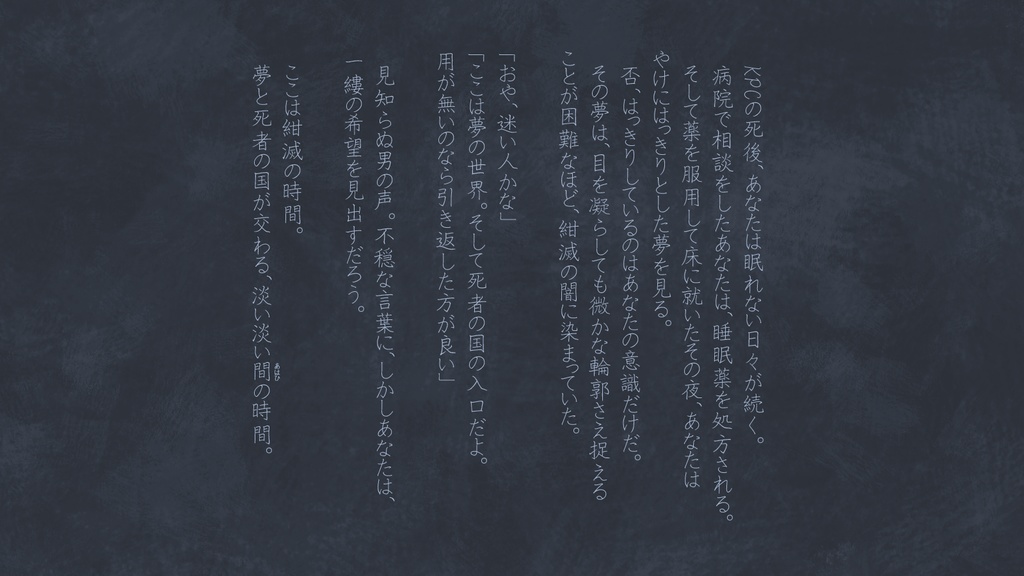 KPCの死後、あなたは眠れない日々が続く。
病院で相談をしたあなたは、睡眠薬を処方される。
そして薬を服用して床に就いたその夜、あなたは
やけにはっきりとした夢を見る。
否、はっきりしているのはあなたの意識だけだ。
その夢は、目を凝らしても微かな輪郭さえ捉える
ことが困難なほど、紺滅の闇に染まっていた。
「おや、迷い人かな」
「ここは夢の世界。そして死者の国の入口だよ。
用が無いのなら引き返した方が良い」
見知らぬ男の声。不穏な言葉に、しかしあなたは、
一縷の希望を見出すだろう。
ここは紺滅の時間。
夢と死者の国が交わる、淡い淡い間の時間。